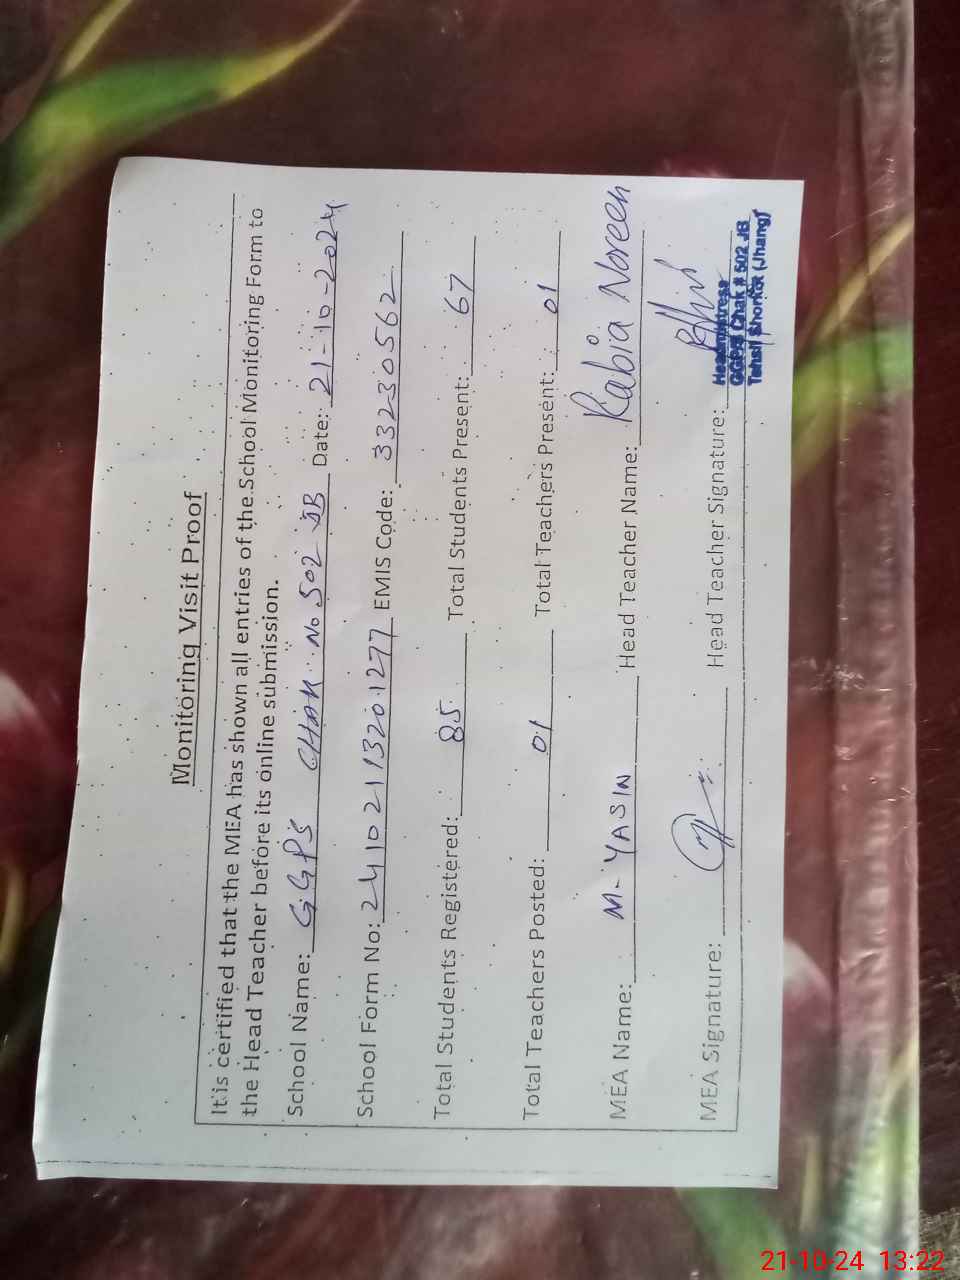 Monitoring Visit Proof
It is certified that the MEA has shown all entries of the School Monitoring Form to
the Head Teacher before its online submission.
School Name: GGPS CHAK No 502 JB Date: 21-10-2024
School Form No: 24102113201277 EMIS Code: 33230562
Total Students Registered: 85 Total Students Present: 67
Total Teachers Posted: 01 Total Teachers Present: 01
MEA Name: M-YASIN Head Teacher Name: Rabia Noreen
MEA Signature: Head Teacher Signature:
Headmistress
GGPS Chak # 502 JB
Tehsil Shorkot (Jhang)
21-10-24 13:22